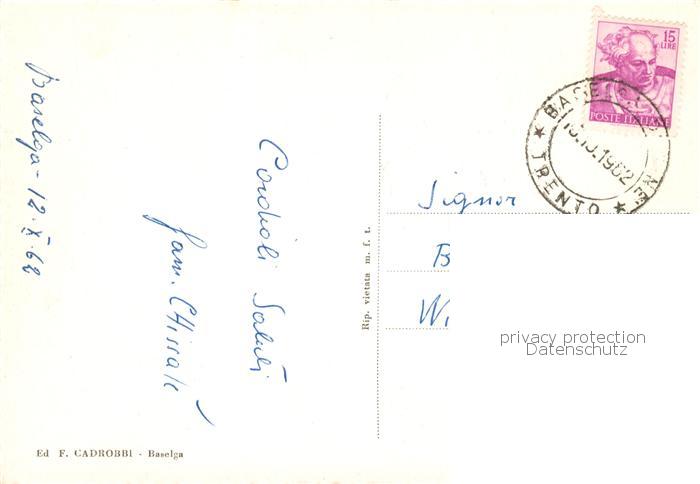 Baselga - 12. X. 62
Cordiali Saluti
fam.
15
LIRE
POSTE ITALIANE
BASELGA DI
TRENTO
.10.1962
Signor
B
Wi
privacy protection
Datenschutz
Rip. vietata m. f. t.
Ed F. CADROBBI - Baselga